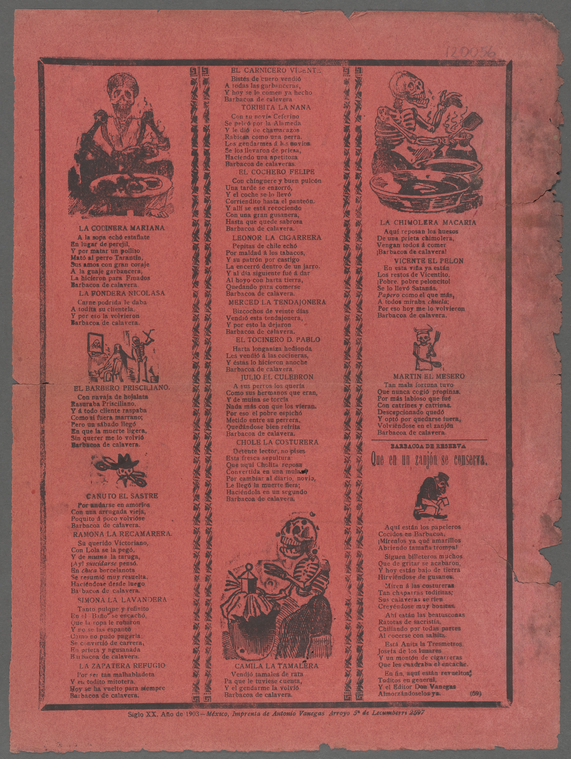 120056
LA COCINERA MARIANA
A la sopa echó estafiate
En lugar de perejil,
Y por matar un pollito
Mató al perro Tarantín,
Sus amos con gran coraje
A la guaje garbancera,
La hicieron para Finados
Barbacoa de calavera.
LA FONDERA NICOLASA
Carne podrida le daba
A todita su clientela,
Y por eso la volvieron
Barbacoa de calavera.
EL BARBERO PRISCILIANO
Con navaja de hojalata
Rasuraba Prisciliano,
Y á todo cliente raspaba
Como si fuera marrano;
Pero un sábado llegó
En que la muerte ligera,
Sin querer me lo volvió
Barbacoa de calavera.
CAÑUTO EL SASTRE
Por andarse en amoríos
Con una arrugada vieja,
Poquito á poco volvióse
Barbacoa de calavera.
RAMONA LA RECAMARERA
Su querido Victoriano,
Con Lola se la pegó,
Y de muina la taruga,
¡Ay! suicidarse pensó.
En
Se resumió muy
Haciéndose desde luego
Barbacoa de calavera.
SIMONA LA LAVANDERA
Tanto pulque y
En el Baño se encachó,
Que la ropa le robaron
Y no se las
Como no pudo pagarla
Se convirtió de carrera,
En prieta y agusanada
Barbacoa de calavera.
LA ZAPATERA REFUGIO
Por ser tan malhabladota
Y en todito mitotera,
Hoy se ha vuelto para siempre
Barbacoa de calavera.
EL CARNICERO VICENTE
Bistés de cuero vendió
A todas las garbanceras,
Y hoy se lo comen ya hecho
Barbacoa de calavera
TORIBITA LA NANA
Con su novio Crispino
Se peleó por la Alameda
Y le dió de chaparrazos
Rabiosa como una perra,
Los gendarmes á los novios
Se los llevaron de priesa,
Haciendo una apestosa
Barbacoa de calaveras
EL COCHERO FELIPE
Con chinguere y buen pulcon
Una tarde se enzacró,
Y el coche se lo llevó
Corriendito hasta el panteón.
Y allí se está recociendo
Con una gran gusanera,
Hasta que quede sabrosa
Barbacoa de calavera.
LEONOR LA CIGARRERA
Pepitas de chile echó
Por maldad á los tabacos,
Y su patrón por castigo
La encerró dentro de un jarro.
Y al día siguiente fué á dar
Al hoyo con harta tierra,
Quedando para comerse
Barbacoa de calavera.
MERCED LA TENDAJONERA
Bizcochos de veinte días
Vendió esta tendajonera,
Y por esto la dejaron
Barbacoa de calavera.
EL TOCINERO D. PABLO
Harta longaniza hedionda
Les vendió á las cocineras,
Y éstas lo hicieron anoche
Barbacoa de calavera.
JULIO EL CULEBRON
A sus perros les quería
Como sus hermanos que eran,
Y de muina se torcía
Nada más con que los vieran.
Por eso el pobre espichó
Metido entre un perrera,
Quedándose bien refrita
Barbacoa de calavera.
CHOLE LA COSTURERA
Detente lector, no pises
Esta fresca sepultura
Que aquí Cholita reposa
Convertida en una mula
Por cambiar al diario, novio,
Le llegó la muerte fiera;
Haciéndola en un segundo
Barbacoa de calavera.
CAMILA LA TAMALERA
Vendió tamales de rata
Pa que le tuviese cuenta,
Y el gendarme la volvió
Barbacoa de calavera.
LA CHIMOLERA MACARIA
Aquí reposan los huesos
De una prieta chimolera,
Vengan todos á comer
¡Barbacoa de calavera!
VICENTE EL PELON
En esta olla ya están
Los restos de Vicentino.
¡Pobre, pobre peloncito!
Se lo llevó Satanás,
Papero como el que más,
A todos miraba
Por eso hoy me lo volvieron
Barbacoa de calavera.
MARTIN EL MESERO
Tan mala fortuna tuvo
Que nunca cogió propinas,
Por más labioso que fué
Con catrines y catrinas.
Descepcionado quedó
Y optó por quedarse fuera,
Volviéndose en el zanjón
Barbacoa de calavera.
BARBACOA DE RESERVA
Que en un zanjón se conserva.
Aquí están los papeleros
Cocidos en Barbacoa,
¡Mírenlos ya qué amarillos
Abriendo tamaña trompa!
Siguen billeteros muchos
Que de gritar se acabaron,
Y hoy están bajo de tierra
Hirviéndose de gusanos.
Miren á las costureras
Tan chaparras todinas;
Sus calaveras se fríe
Creyéndose muy buenas.
Ahí están las
Rateras de sacristía,
Chillando por todas partes
Al cocerse con salsita.
Está Anita la Tesonera
Junto de los boxeros
Y un montón de cigarreras
Que les cuadraba el cacacho.
En fin, aquí están revueltos
Toditos en general,
Y el Editor Don Vanegas
Almorzándoselos ya.
Siglo XX. Año de 1907—México, Imprenta de Antonio Vanegas Arroyo 5ª de Lecumberri 2597